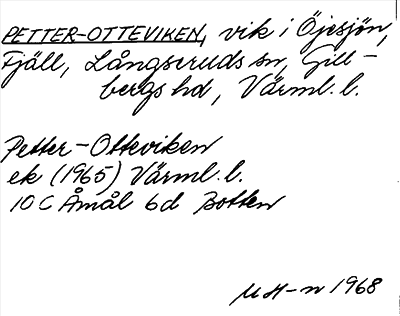 PETTER-OTTEVIKEN, vik i Öjesjön,
Fjäll, Långseruds sn, Gill-
bergs hd, Värml. l.
Petter-Otteviken
ek (1965) Värml. l.
10 C Åmål 6d Botten
M H-n 1968